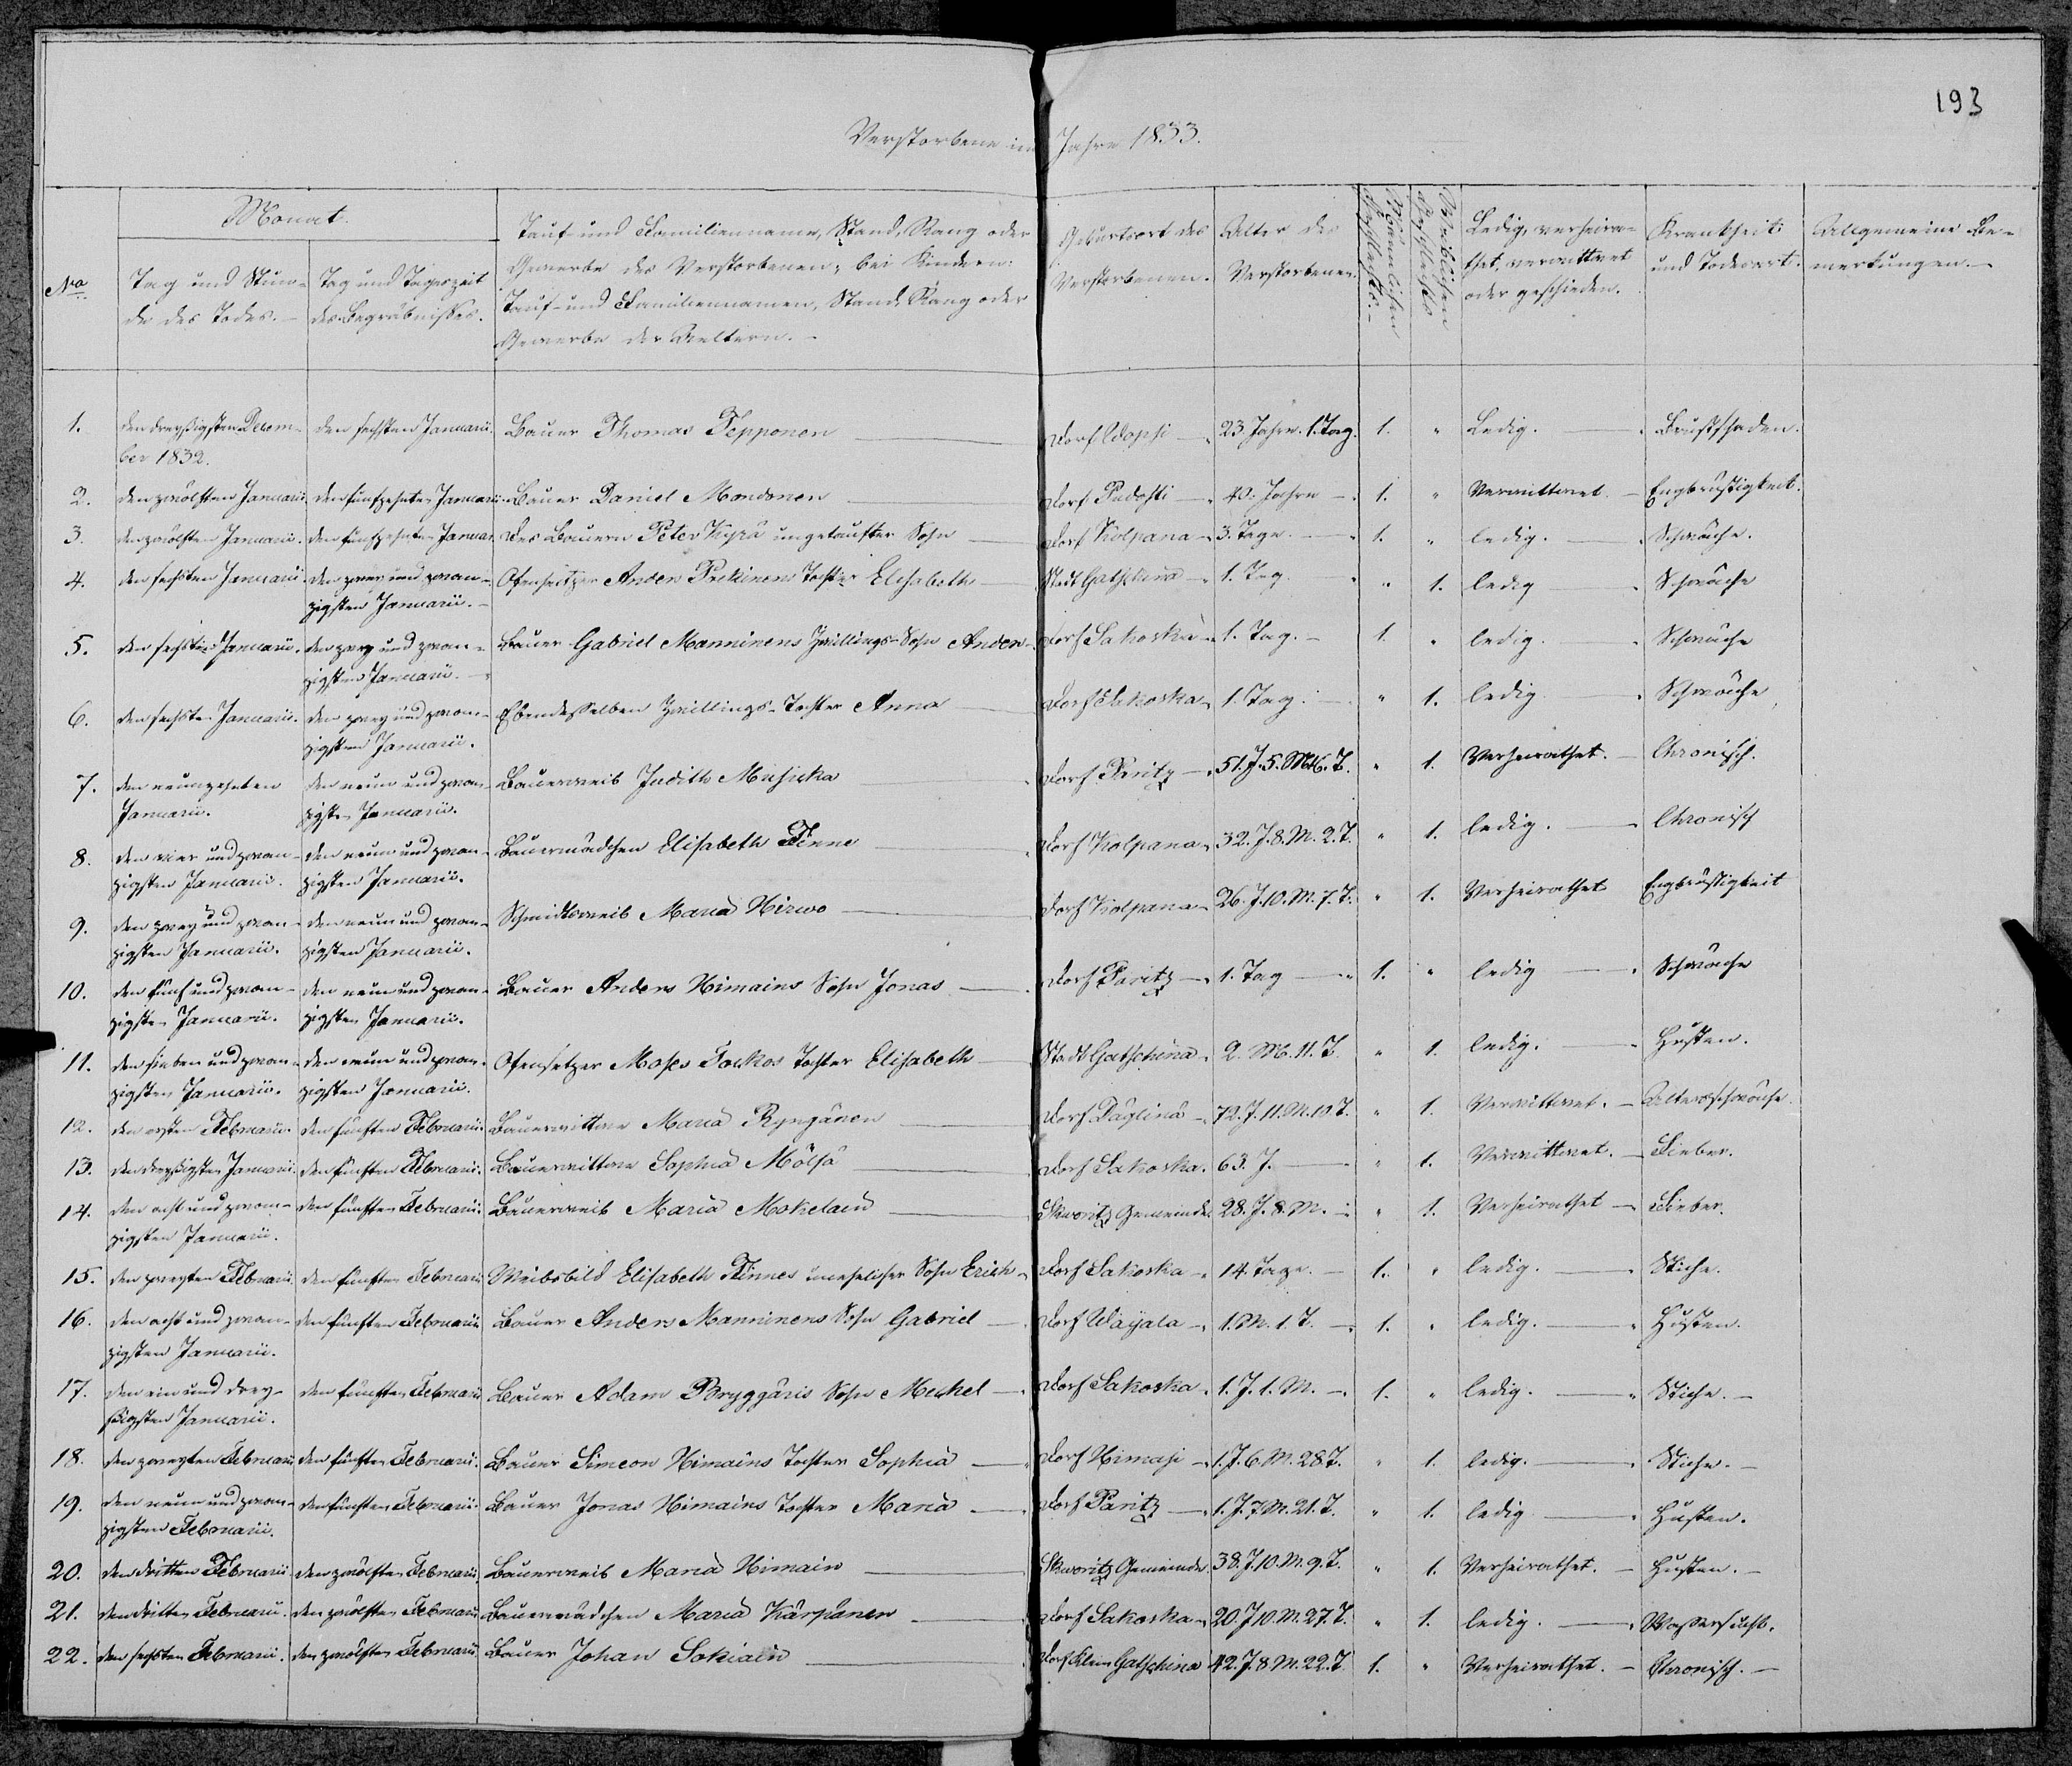 193
Verstorbene im Jahre 1833.
No
Monat.
Tag und Stunde des Todes.
Tag und Tageszeit des Begräbnisses.
Tauf- und Familienname, Stand, Rang oder
Gewerbe des Verstorbenen; bei Kindern:
Tauf- und Familiennamen, Stand, Rang oder
Gewerbe der Aeltern.
Geburtsort des Verstorbenen.
Alter des Verstorbenen.
Männlichen Geschlechts.
Weiblichen Geschlechts
Ledig, verheirathet, verwittwet oder geschieden.
Krankheit und Todesart.
Allgemeine Bemerkungen.
1. den dreyßigsten December 1832. den sechsten Januarii. Bauer Thomas Tepponen Dorf Wopsi 23. Jahre. 1. Tag. 1. " Ledig. Brustschaden.
2. den zwölften Januarii den funfzehnten Januarii Bauer Daniel Mondonen Dorf Pudosti 40. Jahre 1. " Verwittwet Engbrüstigkeit.
3. den zwölften Januarii. den funfzehnten Januar. Des Bauern Peter Kyrä ungetaufter Sohn Dorf Kolpana 3. Tage. 1. " ledig. Schwäche.
4. den sechsten Januarii den zwey und zwanzigsten Januarii. Ofensetzer Anders Prekinens Tochter Elisabeth Stadt Gatschina 1. Tag. " 1. ledig Schwäche
5. den sechsten Januarii. den zwey und zwanzigsten Januarii. Bauer Gabriel Manninens Zwillings-Sohn Anders Dorf Sakoska 1. Tag. 1. " ledig. Schwäche
6. den sechsten Januarii. den zwey und zwanzigsten Januarii. Ebendesselben Zwillings-Tochter Anna Dorf Sakoska 1. Tag. " 1. ledig Schwäche
7. den neunzehnten Januarii. den neun und zwanzigsten Januarii. Bauerweib Judith Musicka Dorf Paritz 51. J. 5. M. 16. T. " 1. Verheirathet. Chronisch.
8. den vier und zwanzigsten Januarii. den neun und zwanzigsten Januarii. Bauermädchen Elisabeth Finne Dorf Kolpana 32. J. 8. M. 2. T. " 1. ledig. Chronisch
9. den zwey und zwanzigsten Januarii. den neun und zwanzigsten Januarii. Schmidtsweib Maria Hirwo Dorf Kolpana 26. J. 10. M. 7. T. " 1. Verheirathet Engbrüstigkeit
10. den fünf und zwanzigsten Januarii. den neun und zwanzigsten Januarii. Bauer Anders Himains Sohn Jonas Dorf Paritz 1. Tag 1. " ledig Schwäche
11. den sieben und zwanzigsten Januarii. den neun und zwanzigsten Januarii. Ofensetzer Moses Taukos Tochter Elisabeth Stadt Gatschina 2. M. 11. T. " 1. ledig. Husten.
12. den ersten Februarii. den fünften Februarii. Bauerwittwe Maria Ryngänen Dorf Däglinä 72. J. 11. M. 10. T. " 1. Verwittwet. Altersschwäche.
13. den dreyßigsten Januarii. den fünften Februarii. Bauerwittwe Sophia Mölsä Dorf Sakoska. 63. J. " 1. Verwittwet. Fieber.
14. den acht und zwanzigsten Januarii. den fünften Februarii. Bauerweib Maria Mokelain Skworitz Gemeinde 28. J. 8. M. " 1. Verheirathet Fieber.
15. den zweyten Februarii den fünften Februarii Weibsbild Elisabeth Finnes unehelicher Sohn Erich Dorf Sakoska 14. Tage. 1. " ledig. Stiche.
16. den acht und zwanzigsten Januarii. den fünften Februarii Bauer Anders Manninens Sohn Gabriel Dorf Wäyala 1. M. 1. T. 1. " ledig. Husten.
17. den ein und dreyßigsten Januarii. den fünften Februarii Bauer Adam Bryggäris Sohn Meckel Dorf Sakoska 1. J. 1. M. 1. " ledig. Stiche.
18. den zweyten Februarii den fünften Februarii. Bauer Simeon Himains Tochter Sophia Dorf Himasi 1. J. 6. M. 28. T. " 1. ledig. Stiche.
19. den neun und zwanzigsten Februarii. den fünften Februarii. Bauer Jonas Himains Tochter Maria Dorf Paritz 1. J. 7. M. 21. T. " 1. ledig Husten.
20. den dritten Februarii den zwölften Februarii, Bauerweib Maria Himain Skworitz Gemeinde 38. J. 10. M. 9. T. " 1. Verheirathet. Husten.
21. den dritten Februarii. den zwölften Februarii Bauermädchen Maria Kärpänen Dorf Sakoska 20. J. 10. M. 27. T. " 1. ledig. Wassersucht.
22. den sechsten Februarii. den zwölften Februarii Bauer Johan Sokiain Dorf Klein Gatschina 42. J. 8. M. 22. T. 1. " Verheirathet. Chronisch.